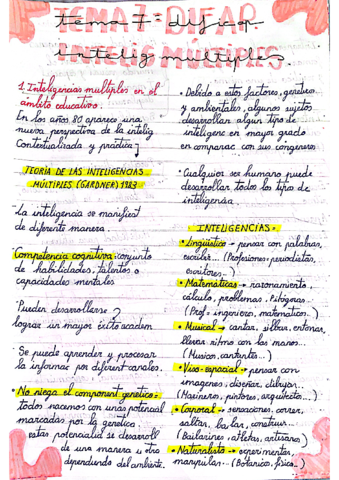 TEMA 7: DIFAP.
INTELIG MÚLTIPLES
tema 7: difiap.
intelig multiples.
1. Inteligencias multiples en el
ámbito educativo.
En los años 80 aparece una
nueva perspectiva de la intelig
Contextualizada y práctica
TEORÍA DE LAS INTELIGENCIAS
MÚLTIPLES (GARDNER) 1983
-La inteligencia se manifiest
de diferente manera.
Competencia cognitiva: conjunto
de habilidades, talentos o
capacidades mentales
Pueden desarrollarse?
lograr un mayor éxito academ.
Se puede aprender y procesar
la informac por diferent canales.
No niega el component genetico:
todos nacemos con unas potencial
marcadas por la genetica.
estas potencialid se desarroll
de una manera u otra
dependiendo del ambiente.
• Debido a estos factores, genetico
y ambientales, algunos sujetos
desarrollan algun tipo de
inteligenc en mayor grado
en comparac con sus congeneres
• Cualquier ser humano puede
desarrollar todos los tipos de
inteligencia
INTELIGENCIAS.
• Lingüistica → pensar con palabras,
escribir... (Profesiones: periodistas,
escritores...)
• Matematicas → razonamiento,
calculo, problemas. Pitágoras.
(Prof = ingeniero, matematico...)
• Musical → cantar, silbar, entonar,
llevar ritmo con las manos...
(Musico, cantante...)
• Viso-espacial → pensar con
imagenes: diseñar, dibujar...
(Marinero, pintores, arquitecto...)
• Corporal → sensaciones. correr,
saltar, bailar, construir...
(Bailarines, atletas, artesano)
• Naturalista → experimentar,
manipular. (Botanico, fisico..)